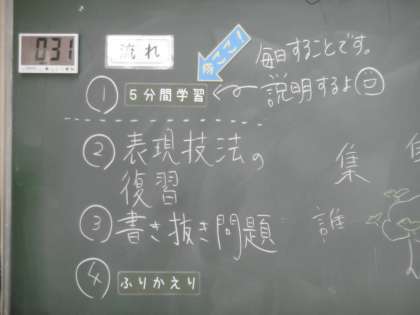 0:31
流れ
今ここ!
毎日することです。
① 5分間学習
説明するよ
② 表現技法の
復習
集
③ 書き抜き問題
誰
④ ふりかえり